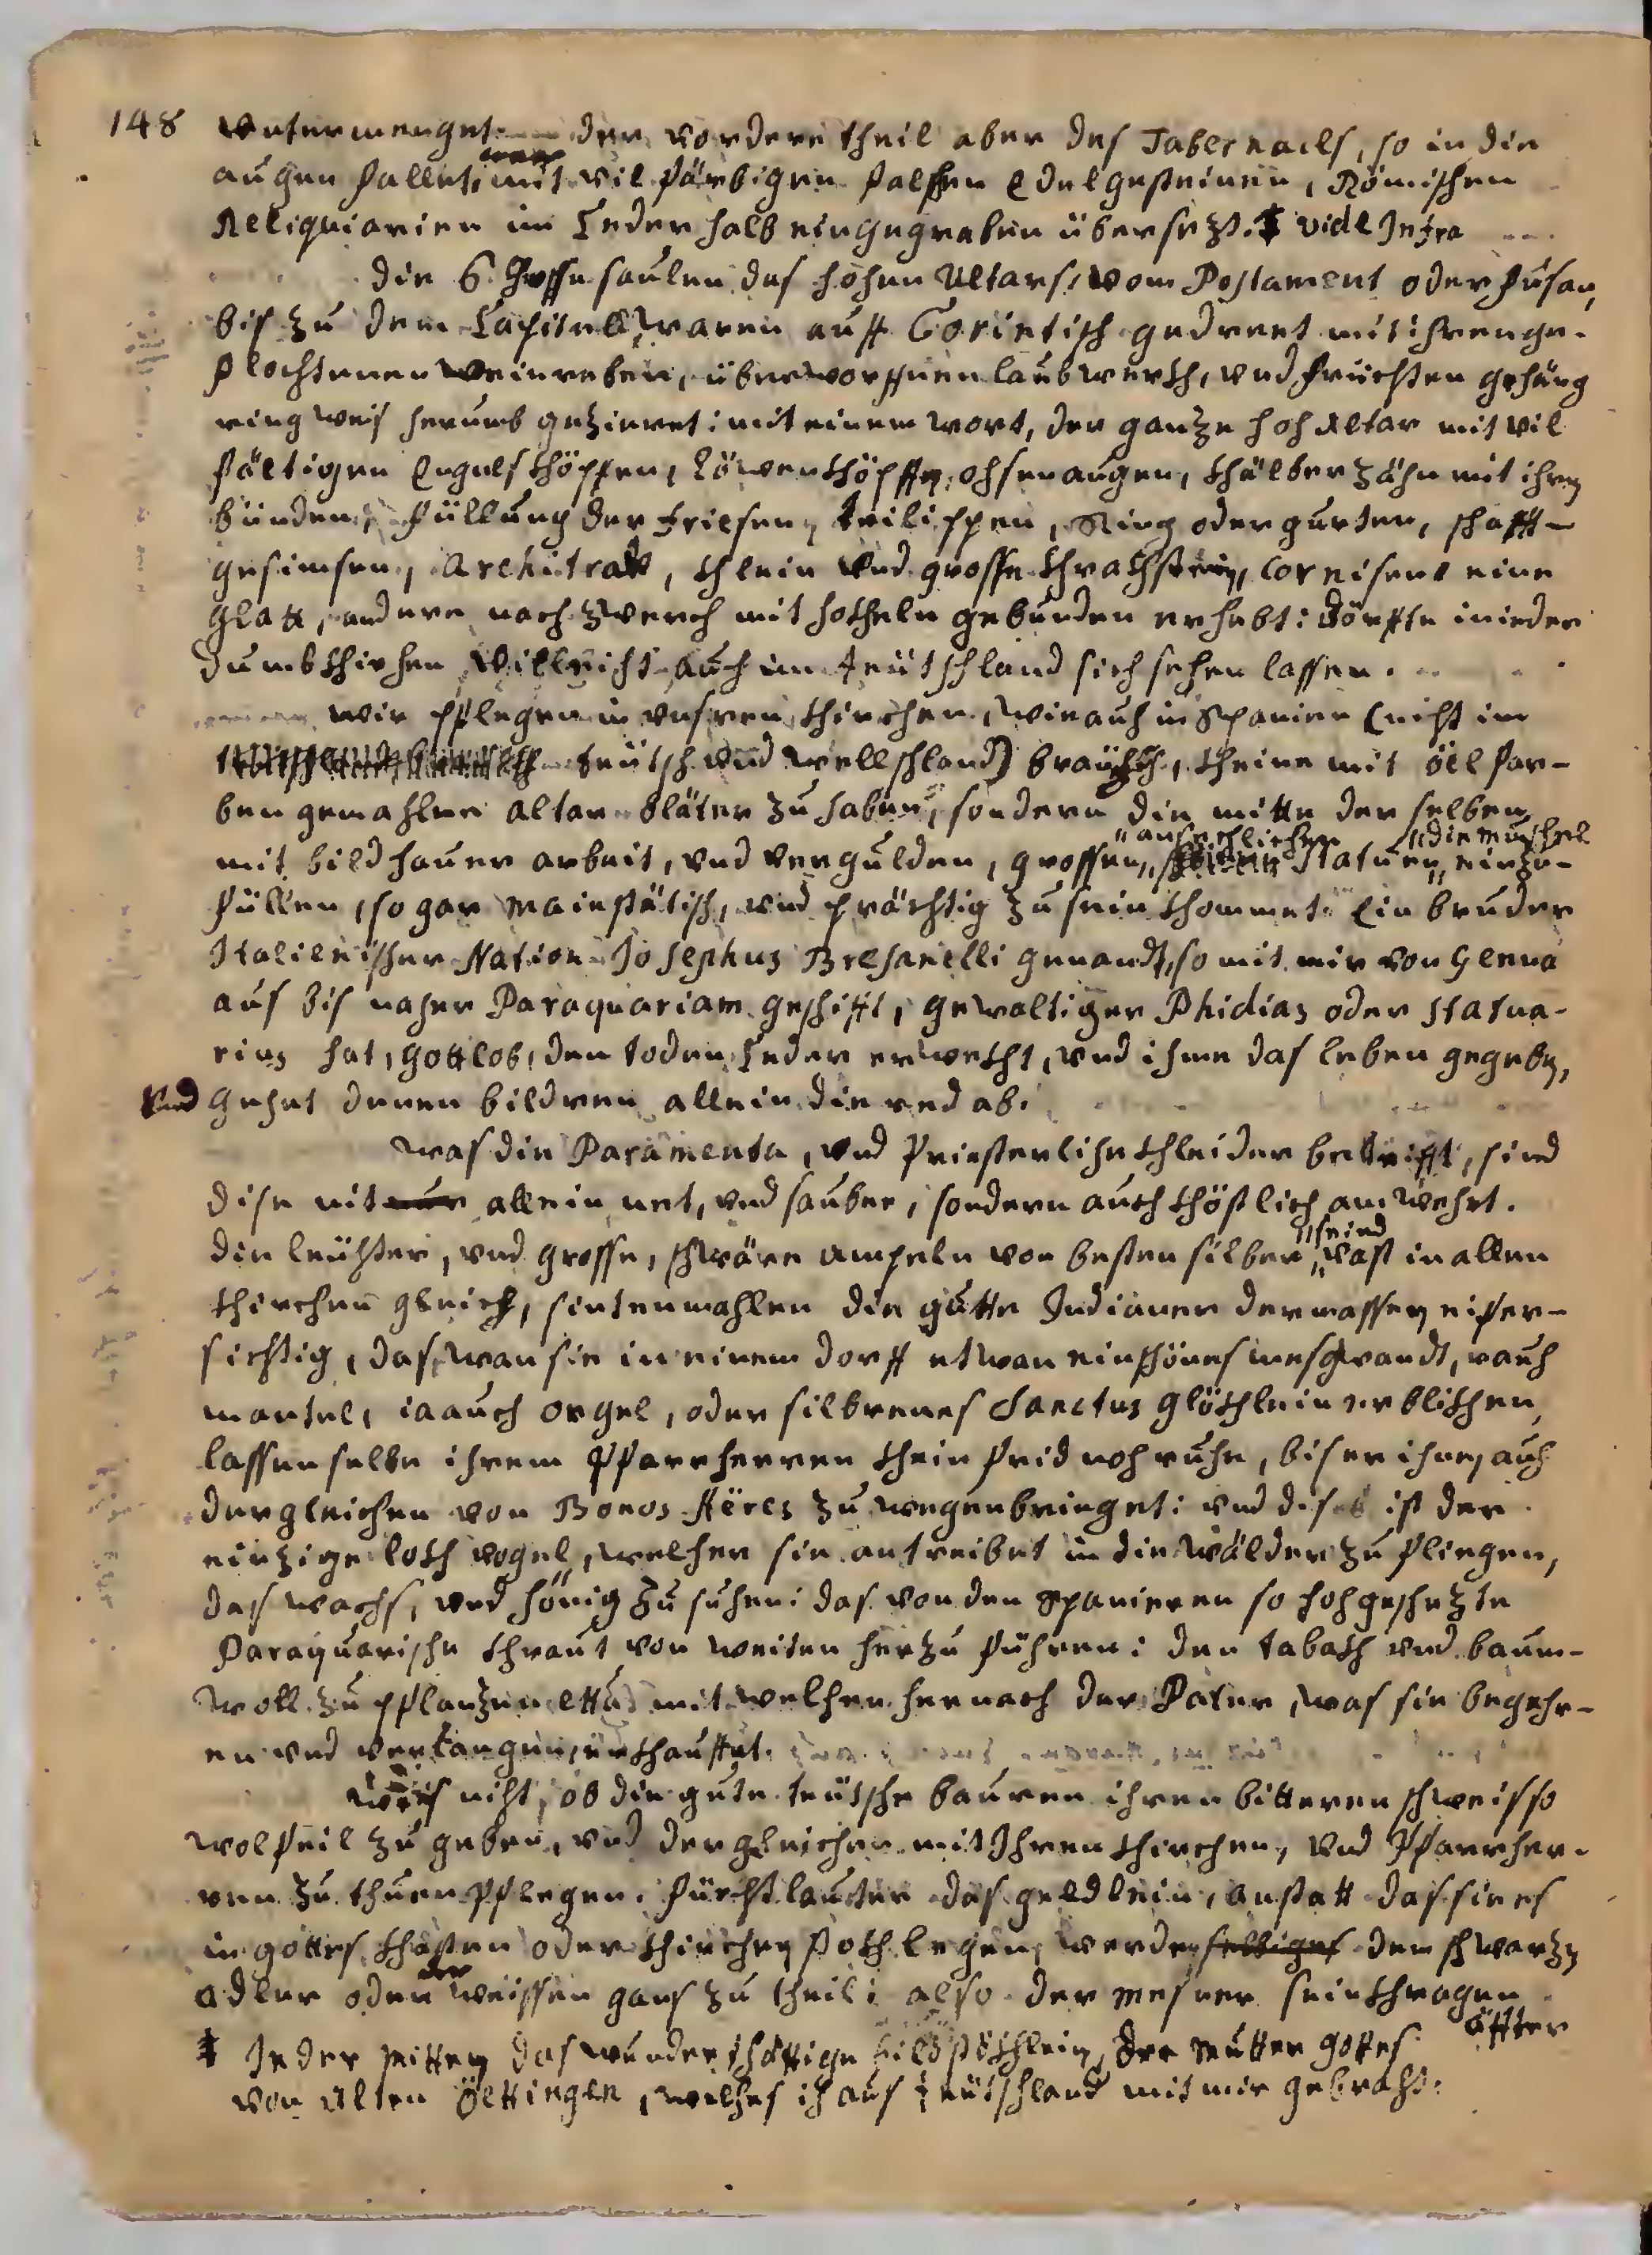 148 untermenget der vordere theil aber des Tabernacls, so in die
augen fallet, mit vil färbigen falschen Edelgesteinen, Römischen
Reliquiarien im Ceder halb eingegraben übersezt. ‡ vide Infra
die 6 grosse saulen des hohen Altars, vom Postament oder fusan,
bis zu dem Capitell, waren auff Corintisch gedreet mit ihren ge-
flochtenen weinreben, überworffnen laubwerkh, und früchten gehäng
ring weis herumb gezieret: mit einem wort, der ganze hoh Altar mit vil
fältigen Engelskhöpfen, Löwenkhöpffen, ohsenaugen, khälberzähn mit ihren
bünden, füllung der friesen, trilippen, Ring oder gurten, schafft-
gesimsen, Architrab, khlein und grosse khrachstein, Corneisen, eine
glatt, andere nach zwerch mit hokheln gebunden erhebt: dörffte in ieder
dumbkhirhen villeicht auch im teütschland sich sehen lassen.
wir pflegen in unsren khirchen, wie auch in Spanien (nicht im
teütsch und wellschland) bräuchig, kheine mit öel far-
ben gemahlne altar bläter zu haben, sondern die mitte der selben
mit bildhauer arbeit, und vergulden, grossen, "ansechlichen Statuen, "die muschel einzu-
füllen, so gar maiestätisch, und prächtig zu sein khommet. Ein bruder
Italienischer Nation Josephus Bresanelli genandt, so mit mir von Genua
aus bis naher Paraquariam geschifft, gewaltiger Phidias oder statua-
rius hat, gottlob, den toden Ceder erwekht, und ihme das leben gegeben,
und gehet denen bildren allein die red ab.
was die Paramenta, und Priesterliche khleider betrifft, sind
dise nit allein net, und sauber, sondern auch khöstlich am wehrt.
die leühter, und grosse, schwäre Ampeln von besten silber "seind vast in allen
khirchen gleich, sintenmahlen die gutte Indianer dermassen eifer-
sichtig, das, wan sie in einem dorff etwan ein schönes mesgwandt, rauch
mantel, ia auch orgel, oder silbrenes Sanctus glökhlein erblikhen,
lassen selbe ihrem Pfarrherren khein frid noh ruhe, bis er ihnen auh
dergleichen von Bonos Aëres zu wegen bringet: und dises ist der
einzige lokh vogel, welcher sie antreibet in die wälder zu fliegen,
das wachs, und hönig zu suhen: das von den Spanieren so hohgeschezte
Paraquarische khraut von weiten herzu führen: den tabakh und baum-
woll zu pflanzen etta mit welhen hernach der Pater, was sie begehr-
en und verlangen, erkhauffet.
weis niht, ob die gute teütsche bauren ihren bitteren schweis so
wolfeil zu geben, und dergleichen mit Ihren khirchen, und Pfarrher-
ren zu thuen pflegen. fürcht lauter das geldlein, anstatt das sie es
in gottes khasten oder khirchen stokh legen, werde selbiges dem schwarzen
adler oder weissen gans zu theil: also der mesner sein khragen
öffter
‡ In der mitten das wunderthättige bildstökhlein, der mutter gottes
von Alten Öettingen, welhes ih aus teütschland mit mir gebraht.